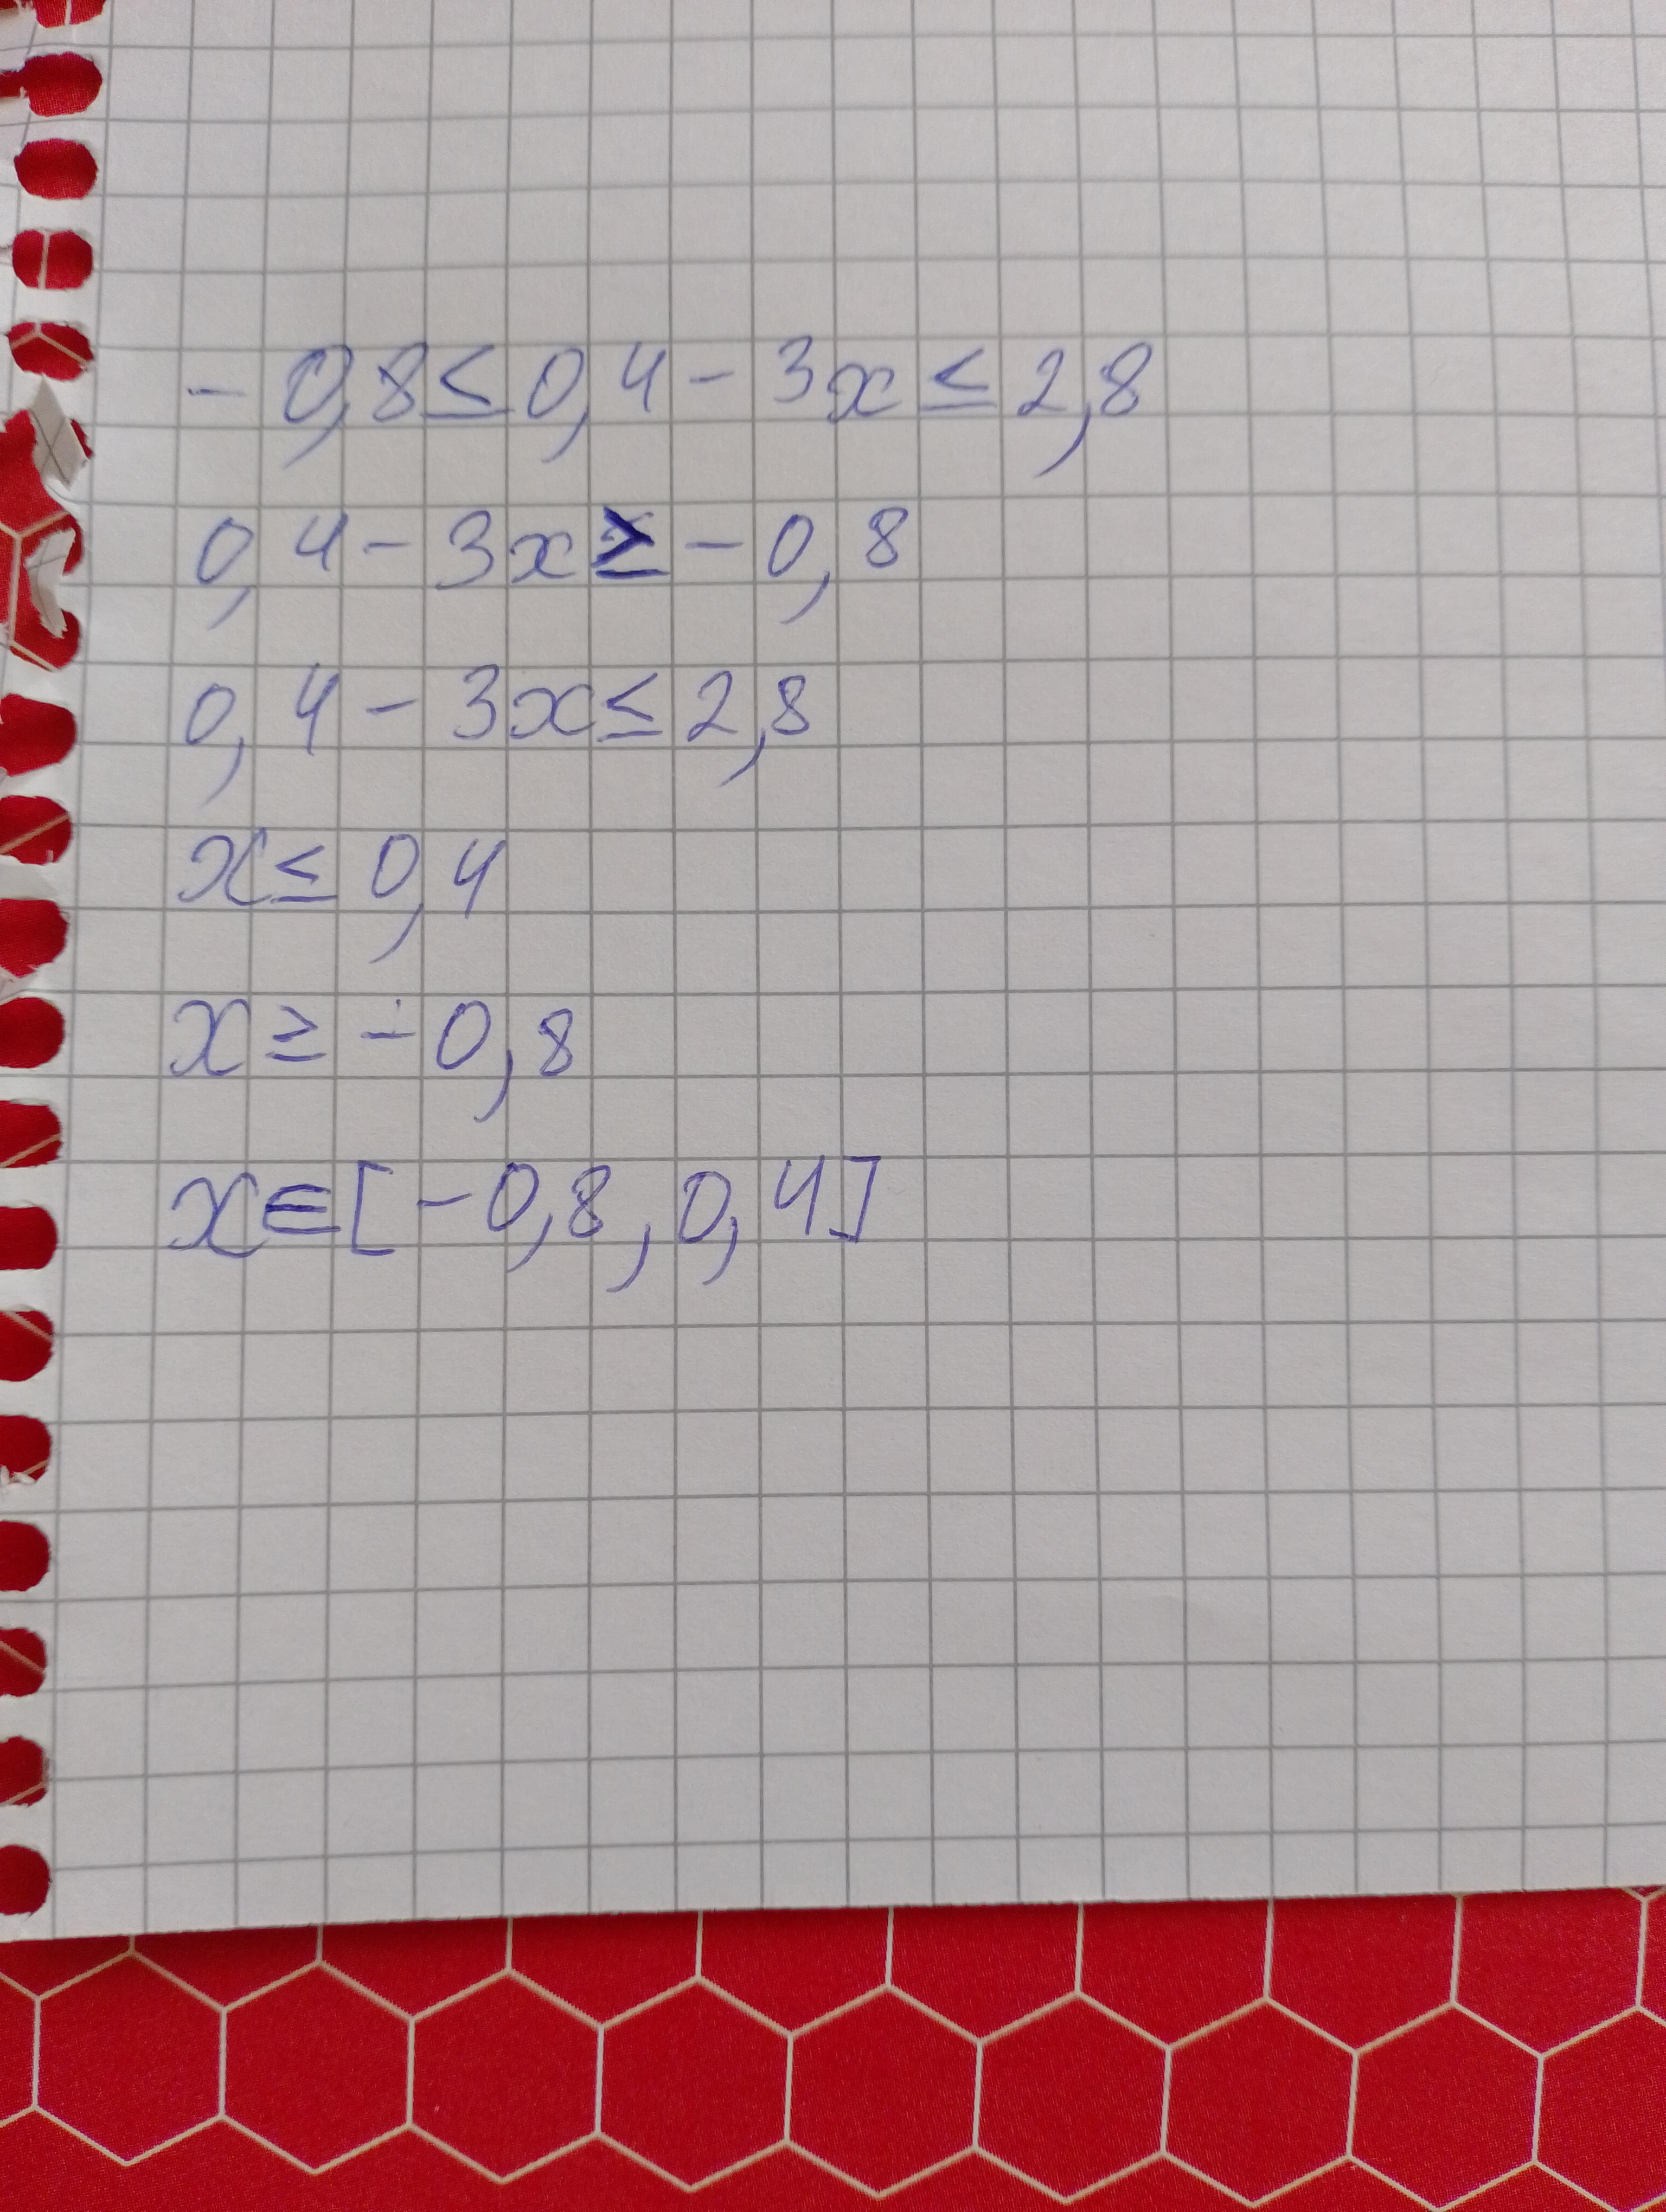 - 0,8 ≤ 0,4 - 3x ≤ 2,8
0,4 - 3x ≥ - 0,8
0,4 - 3x ≤ 2,8
x ≤ 0,4
x ≥ - 0,8
x ∈ [- 0,8 , 0,4]